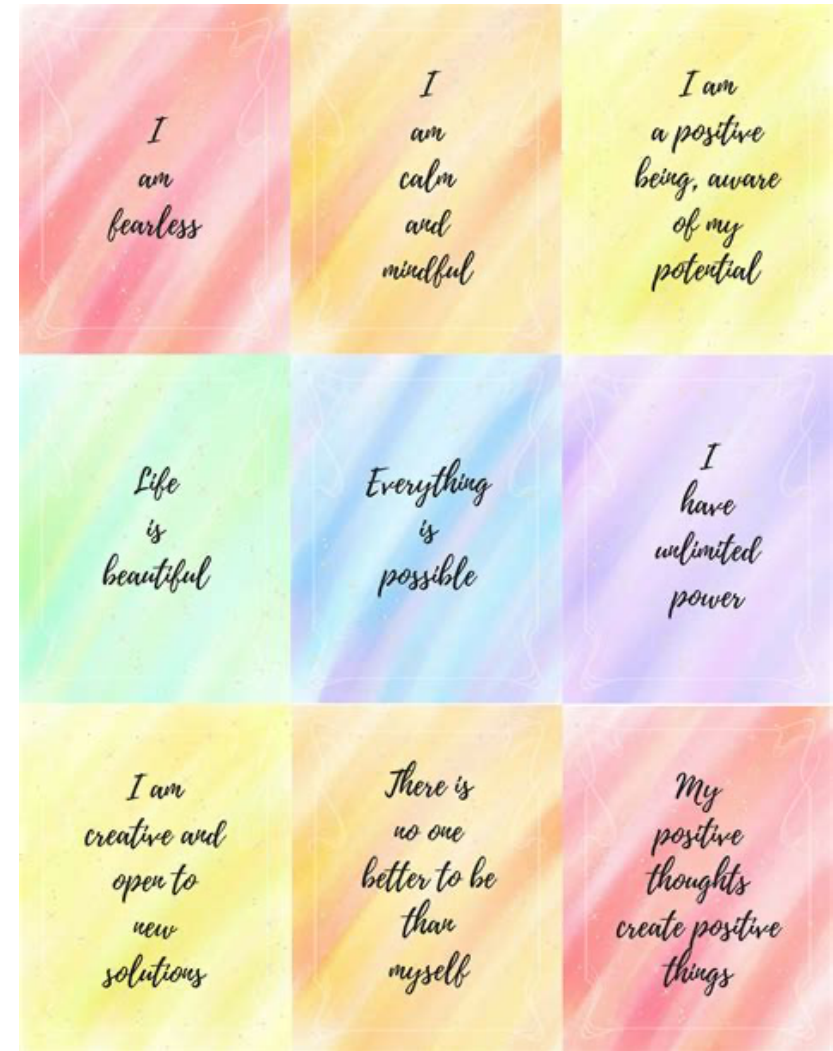 I
am
fearless
I
am
calm
and
mindful
I am
a positive
being, aware
of my
potential
Life
is
beautiful
Everything
is
possible
I
have
unlimited
power
I am
creative and
open to
new
solutions
There is
no one
better to be
than
myself
My
positive
thoughts
create positive
things